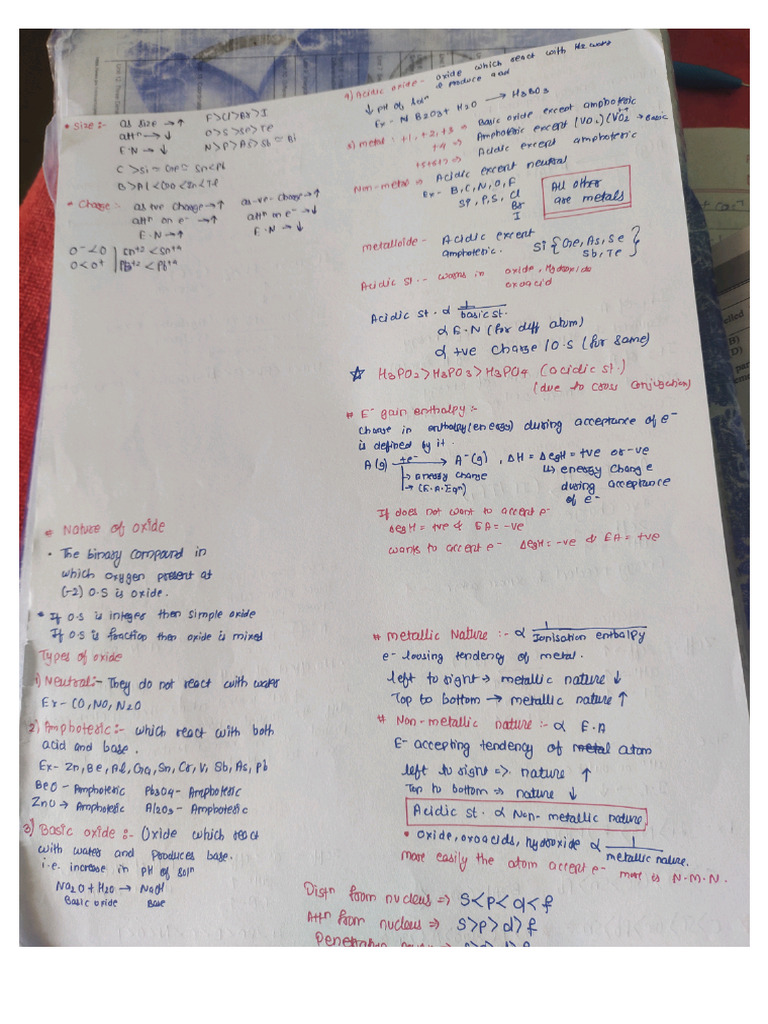 * Size :- as size → ↑ F>Cl>Br>I
attⁿ → ↓ O>S>Se>Te
E·N → ↓ N>P>As>Sb≃Bi
C >Si≃Ge≃Sn<Pb
* Charge :- as +ve charge → ↑ as -ve charge → ↑
attⁿ on e⁻ → ↑ attⁿ on e⁻ → ↓
E·N → ↑ E·N → ↓
O⁻<O | Sn⁺²<Sn⁺⁴
O<O⁺ | Pb⁺²<Pb⁺⁴
# Nature of oxide
• The binary compound in
which oxygen present at
(-2) O.S is oxide.
* If O.S is integer then simple oxide
If O.S is fraction then oxide is mixed
Types of oxide
1) Neutral:- They do not react with water
Ex - CO, NO, N2O
2) Amphoteric :- which react with both
acid and base.
Ex- Zn, Be, Al, Ga, Sn, Cr, V, Sb, As, Pb
BeO - Amphoteric Pb3O4 - Amphoteric
ZnO → Amphoteric Al2O3 - Amphoteric
3) Basic oxide :- Oxide which react
with water and produces base.
i.e. increase in pH of solⁿ
Na2O + H2O → NaOH
Basic oxide Base
4) Acidic oxide - oxide which react with H2 water
& produce acid
↓ pH of solⁿ
Ex - N B2O3 + H2O → H3BO3
5) metal : +1, +2, +3 ⇒ Basic oxide except amphoteric
+4 ⇒ Amphoteric except (VO2) → Basic
⇒ Acidic except amphoteric
Non-metal ⇒ Acidic except neutral
Ex - B, C, N, O, F
P, S, Cl
Br
I
All other
are metals
metalloide - Acidic except
amphoteric. Si { Ge, As, Se
Sb, Te }
Acidic st. - works in oxide, Hydroxide
oxoacid
Acidic st. α 1/basic st.
α E.N (for diff atom)
α +ve charge / O.S (for same)
☆ H3PO2 > H3PO3 > H3PO4 (acidic st.)
(due to cross conjugation)
# E⁻ gain enthalpy :-
Change in enthalpy (energy) during acceptance of e⁻
is defined by it.
A(g) +e⁻ → A⁻(g), ΔH = ΔegH = +ve or -ve
↳ energy change ↳ energy change
→ (E.A. Eqⁿ) during acceptance
of e⁻
If does not want to accept e⁻
ΔegH = +ve & EA = -ve
wants to accept e⁻ ΔegH = -ve & EA = +ve
# Metallic Nature :- α 1/Ionisation enthalpy
e⁻ loosing tendency of metal.
left to right → metallic nature ↓
Top to bottom → metallic nature ↑
# Non-metallic nature :- α E.A
E⁻ accepting tendency of metal atom
left to right => nature ↑
Top to bottom => nature ↓
Acidic st. α Non-metallic nature
• oxide, oxoacids, hydroxide α 1/metallic nature.
More easily the atom accept e⁻ more is N.M.N.
Distⁿ from nucleus => S<P<d<f
Attⁿ from nucleus => S>P>d>f